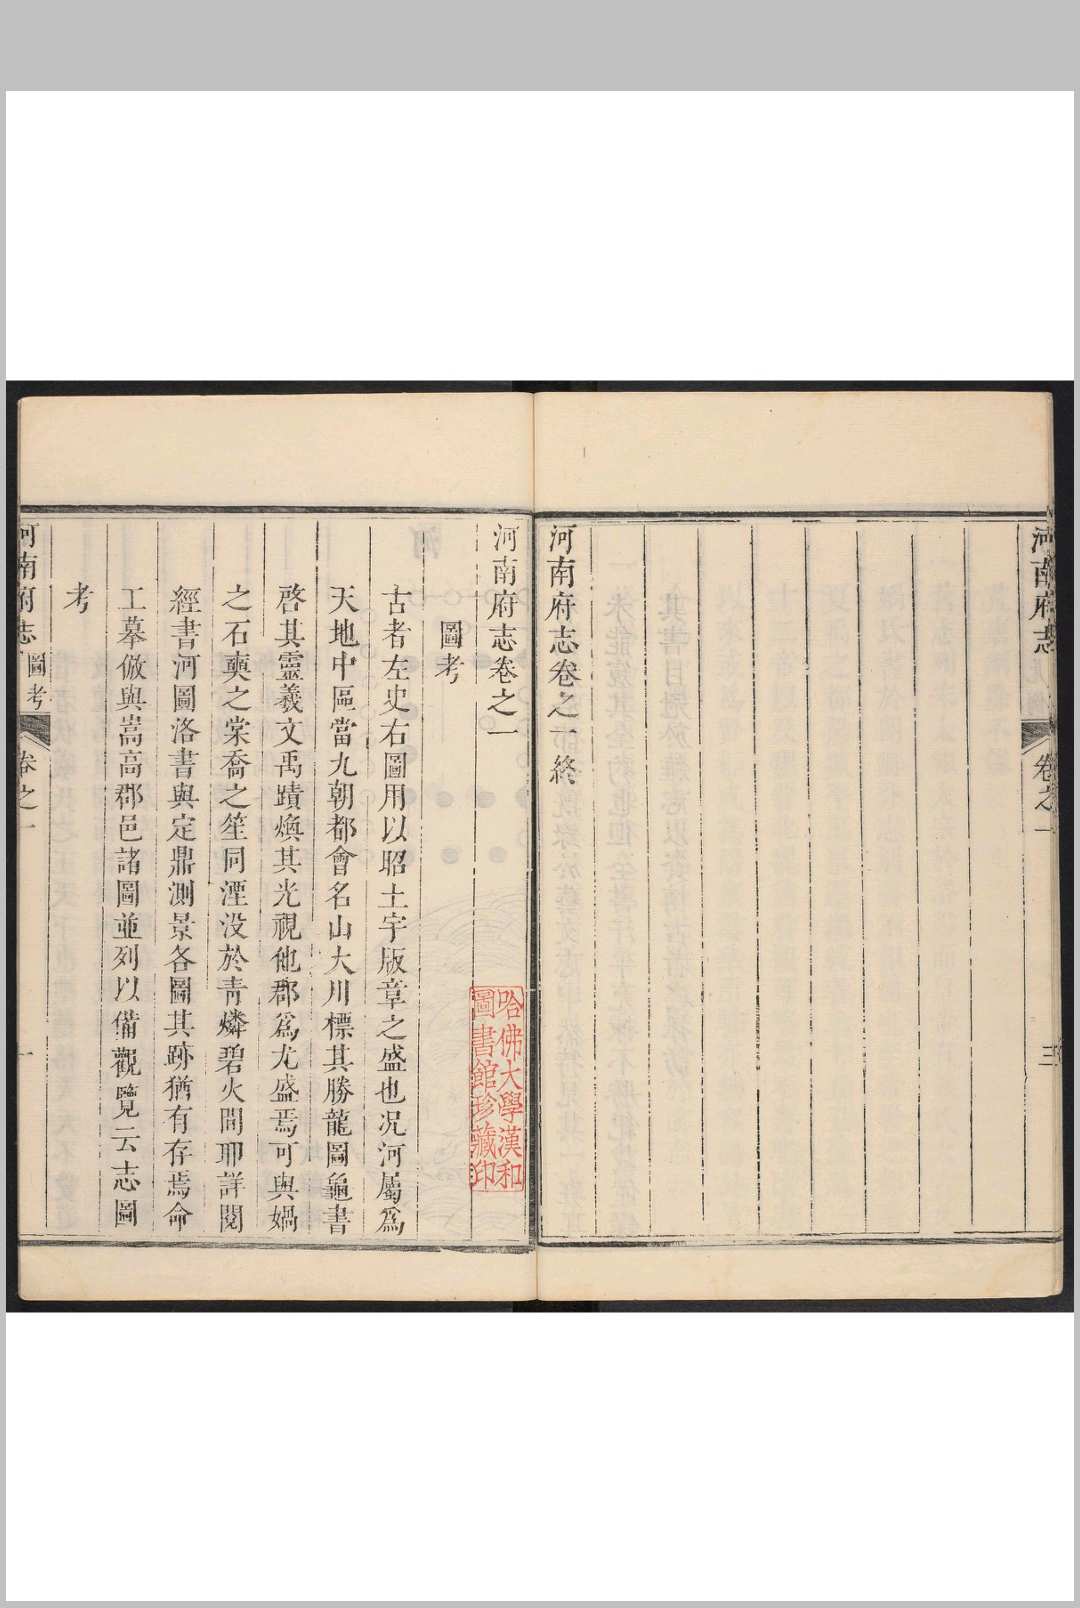 河南府志
卷之一
三
河南府志卷之一終
河南府志卷之一
圖考
古者左史右圖用以昭土宇版章之盛也况河屬爲
天地中區當九朝都會名山大川標其勝龍圖龜書
啓其靈羲文禹蹟煥其光視他郡爲尤盛焉可與媧
之石奭之棠喬之笙同湮没於靑燐碧火間耶詳閱
經書河圖洛書與定鼎測景各圖其跡猶有存焉命
工摹倣與嵩高郡邑諸圖並列以備觀覽云志圖
考
河南府志
圖考
卷之一
一
哈佛大學漢和
圖書館珍藏印